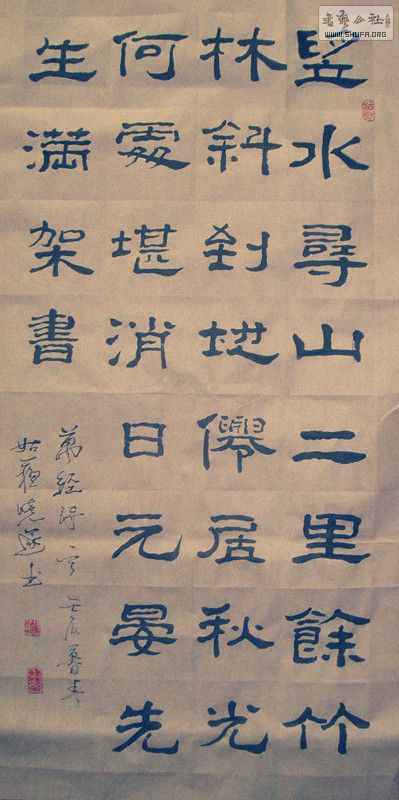 朢水尋山二里餘竹
林斜到地僊居秋光
何處堪消日元晏先
生滿架書
壬辰暮春
姑蘇曉
書藝公社
WWW.SHUFA.ORG